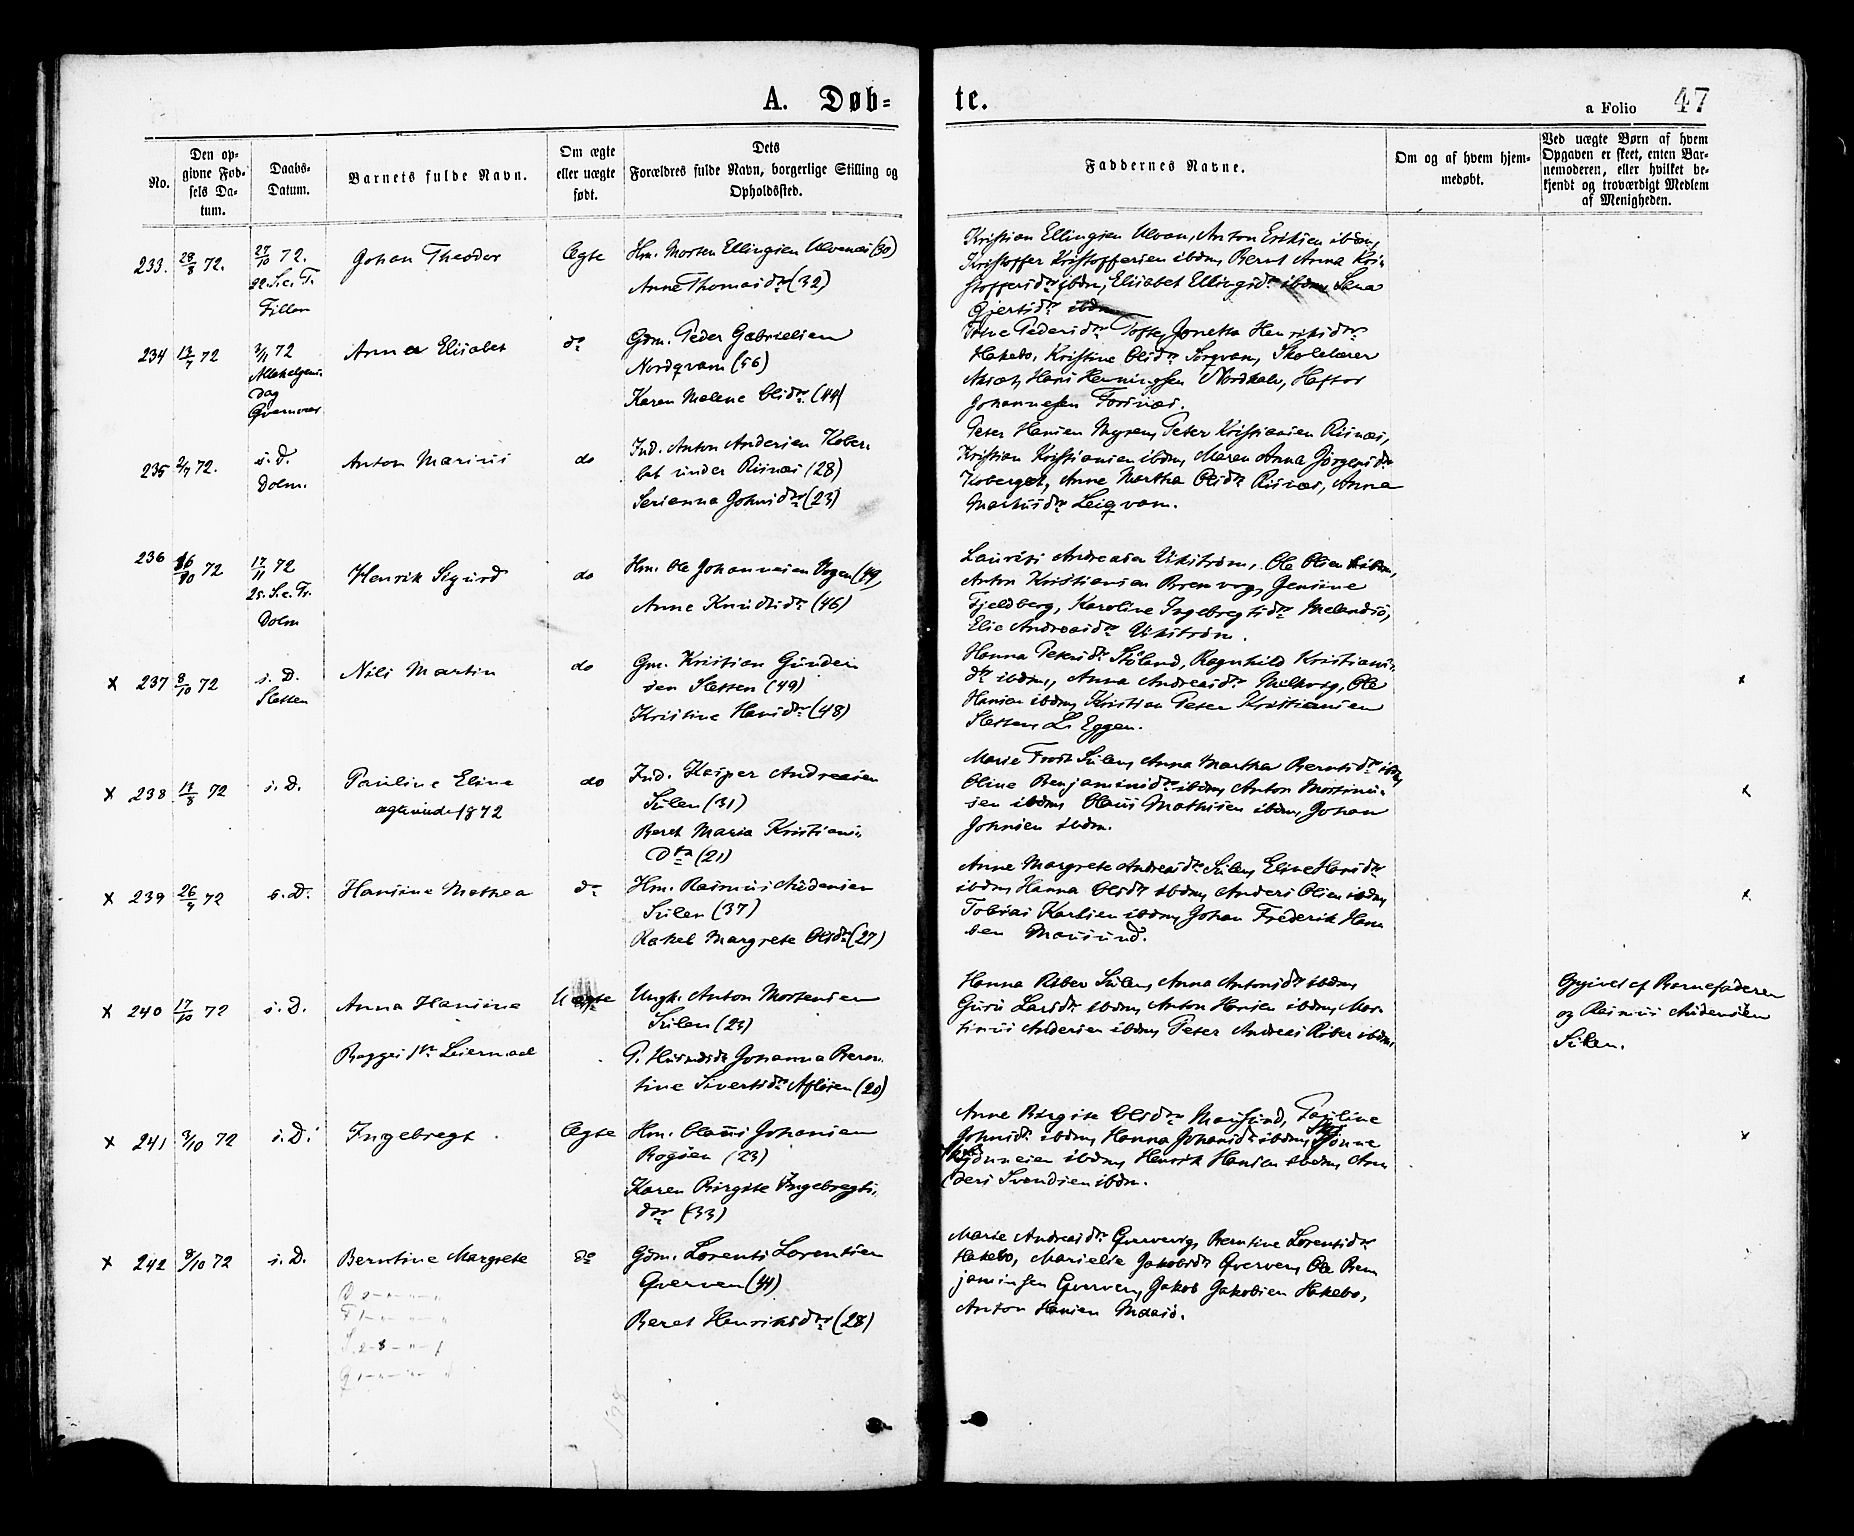 A. Døb= te.
a Folio 47
No.
Den op-
givne Fød-
sels Da-
tum.
Daabs-
Datum.
Barnets fulde Navn.
Om ægte
eller uægte
født.
Dets
Forældres fulde Navn, borgerlige Stilling og
Opholdssted.
Faddernes Navne.
Om og af hvem hjem-
medøbt.
Ved uægte Børn af hvem
Opgaven er skeet, enten Bar-
nemoderen, eller hvilket be-
kjendt og troværdigt Medlem
af Menigheden.
233. 28/8 72.
27/10 72.
22 S. e. Tr.
Fillan
Johan Theodor
Ægte
Hm. Morten Ellingsen Ulvanæs (30)
Anne Thomasdtr (32)
Kristian Ellingsen Ulvan, Anton Eriksen ibdm,
Kristoffer Kristoffersen ibdm, Beret Anna Kri-
stoffersdtr ibdm, Elisabet Ellingsdtr ibdm
Gjertsdtr ibdm
234 13/7 72
1/11 72
Allehelgens
Dag
Anna Elisabet
do
Gdm. Peder Gabrielsen
Nordqvam (56)
Karen Malene Olsdtr (44)
Pedersdtr Tofte, Jonetta Henriksdtr
Hakebo, Kristine Olsdtr Sørqvam, Skolelærer
Hans Henningsen Nordhalv, Haftor
Johannesen Forsnæs.
235 2/7 72.
s. D.
Dolm.
Anton Marius
do
Ind. Anton Andersen Kober-
let under Risnæs (28)
Serianna Johnsdtr (23)
Peter Hansen Myren, Peter Kristiansen Risnæs,
Kristian Kristiansen ibdm, Maren Anna Jörgensdtr
Koberget, Anne Martha Olsdtr Risnæs, Anna
Mathisdtr Leiqvam.
236 16/10 72
17/11 72
25. S. e. Tr.
Dolm
Henrik Sigurd
do
Hm. Ole Johannesen Vogen (49)
Anne Knudtsdtr (46)
Laurits Andreasen Vikström, Ole Olsen ibdm,
Anton Kristiansen Brenvog, Jensine
Fjeldberg, Karoline Ingebregtsdtr Melandsö,
Elie Andreasdtr Vikström.
x 237 8/10 72
s. D.
Sletten
Nils Martin
do
Gm. Kristian Gunder-
sen Sletten (49)
Kristine Hansdtr (48)
Hanna Petersdtr Stöland, Ragnhild Kristians-
dtr ibdm, Anna Andreasdtr Melkvog, Ole
Hansen ibdm, Kristian Peter Kristiansen
Sletten, L. Eggen.
x
x 238 13/8 72
s. D.
Pauline Eline
1872
do
Ind. Kasper Andreasen
Sulen (31)
Beret Maria Kristians-
Dtr (21)
Marie Frost Sulen, Anna Martha Berntsdtr ibdm,
Oline Benjaminsdtr ibdm, Anton Martinus-
sen ibdm, Olaus Mathisen ibdm, Johan
Johnsen ibdm.
x
x 239 26/9 72
s. D.
Hansine Mathea
do
Hm. Rasmus Audensen
Sulen (37)
Rakel Margrete Olsdtr (27)
Anne Margrete Andreasdtr Sulen, Eline Hansdtr
ibdm, Hanna Olsdtr ibdm, Anders Olsen ibdm,
Tobias Karlsen ibdm, Johan Frederik Han-
sen Mausund.
x
x 240 17/10 72
s. D.
Anna Hansine
Begges 1ste Leiermaal
Uægte
Ungk. Anton Mortensen
Sulen (23)
P. Johanna Bern-
tine Sivertsdtr Aflösen (20)
Hanna Röber Sulen, Anna Antonsdtr ibdm,
Guru Larsdtr ibdm, Anton Hansen ibdm, Mar-
tinus Andersen ibdm, Peter Andreas Röber ibdm,
Opgivet af Barnefaderen
og Rasmus Audensen
Sulen.
x 241 3/10 72
s. D.
Ingebregt
Ægte
Hm. Olaus Johansen
Bogöen (23)
Karen Birgite Ingebregts-
dtr (33)
Anne Birgite Olsdtr Mausund, Pauline
Johnsdtr ibdm, Hanna Johansdtr ibdm,
ibdm, Henrik Hansen ibdm, An-
ders Svendsen ibdm.
x
x 242 8/10 72
s. D.
Berntine Margrete
do
Gdm. Lorents Lorentsen
Qverven (41)
Beret Henriksdtr (28)
Marie Andreasdtr Qvervevig, Berntine Lorentsdtr
Hakebo, Marielie Jakobsdtr Qverven, Ole Ben-
jaminsen Qverven, Jakob Jakobsen Hakebo,
Anton Hansen Maasö.